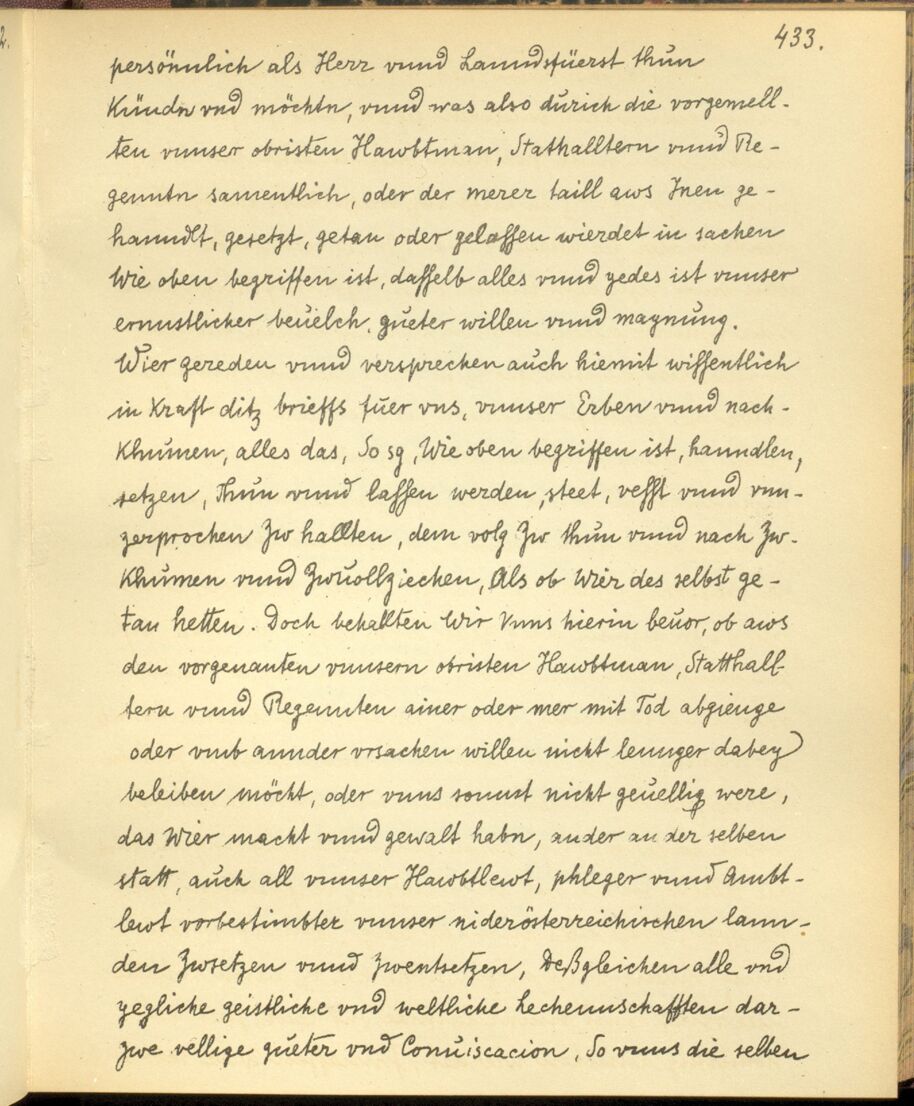 433.
persönnlich als Herr vnnd Lanndsfüerst thun
Kündn vnd möchtn, vnnd was also dürich die vorgemell-
ten vnnser obristen Hawbtman, Stathalltern vnnd Re-
genntn samentlich, oder der merer taill aws Jnen ge-
hanndlt, gesetzt, getan oder gelassen wierdet in sachen
Wie oben begriffen ist, dasselb alles vnnd yedes ist vnnser
ernnstlicher beuelch, güeter willen vnnd maynung.
Wier gereden vnnd versprechen auch hiemit wissentlich
in Kraft ditz brieffs füer vns, vnnser Erben vnnd nach-
Khumen, alles das, So sy, Wie oben begriffen ist, hanndlen,
setzen, Thun vnnd lassen werden, steet, vesst vnnd vnn-
zerprochen Zw hallten, dem volg Zw thun vnnd nach Zw-
Khumen vnnd Zwuollziechen, Als ob Wier des selbst ge-
tan hetten. Doch behallten Wir Vnns hierin beuor, ob aws
den vorgenanten vnnsern obristen Hawbtman, Statthall-
tern vnnd Regennten ainer oder mer mit Tod abgienge
oder vmb annder vrsachen willen nicht lennger dabey
beleiben möcht, oder vnns sonnst nicht geuellig were,
das Wier macht vnnd gewalt habn, ander an der selben
statt, auch all vnnser Hawbtlewt, phleger vnnd Ambt-
lewt vorbestimbter vnnser niderösterreichischen lann-
den Zwsetzen vnnd Zwentsetzen, Deßgleichen alle vnd
yegliche geistliche vnd weltliche Lechennschafften dar-
zwe vellige güeter vnd Conuiscacion, So vnns die selben